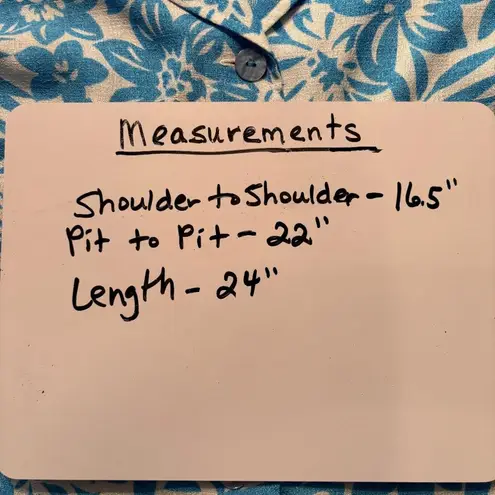 Measurements
Shoulder to Shoulder - 16.5"
Pit to Pit - 22"
Length - 24"